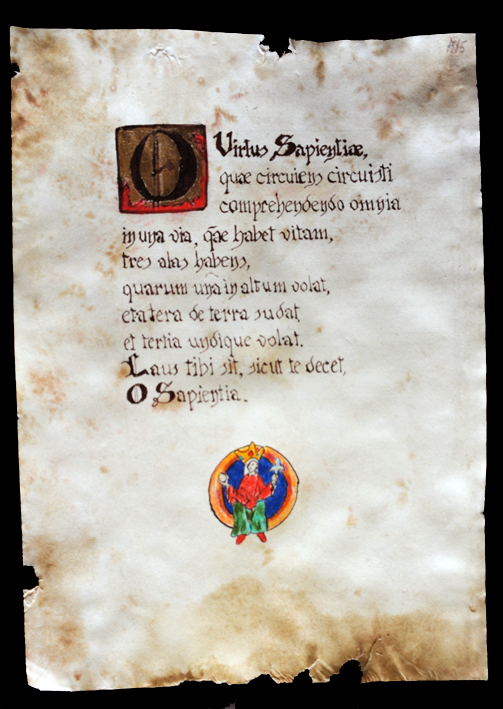 O Virtus Sapientiæ,
quæ circuiens circuisti
comprehendendo omnia
in una via, quæ habet vitam,
tres alas habens,
quarum una in altum volat,
et altera de terra sudat
et tertia undique volat.
Laus tibi sit, sicut te decet,
O Sapientia.